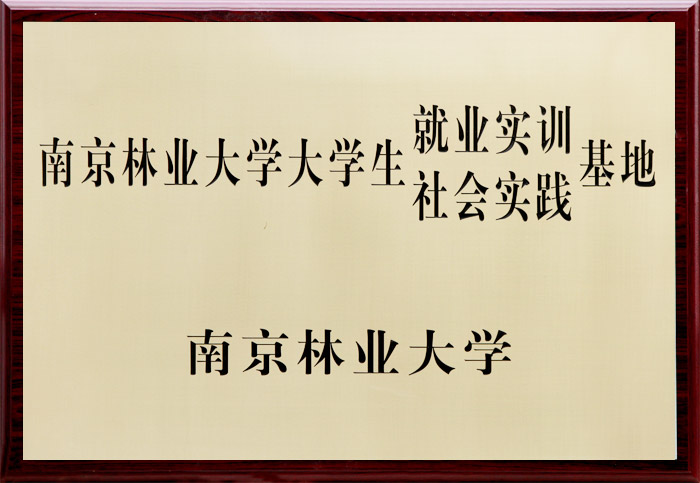 南京林业大学大学生就业实训社会实践基地
南京林业大学